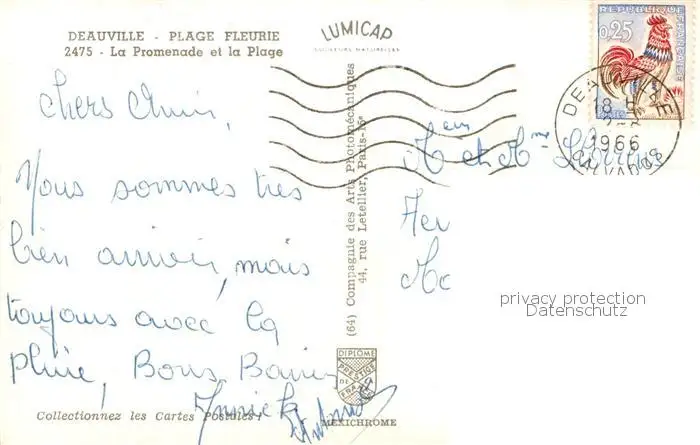 DEAUVILLE - PLAGE FLEURIE
2475 - La Promenade et la Plage
LUMICAP
REPUBLIQUE FRANÇAISE
0,25
DEAUVILLE
18 H
1966
CALVADOS
Chers Amis,
Nous sommes très
bien arrivés, mais
toujours avec la
pluie, Bons Baisers
Annick
M et Mme
(64) Compagnie des Arts Photomécaniques
44, rue Letellier, Paris-15e
privacy protection
Datenschutz
DIPLOME
PRESTIGE
DE
FRANCE
MEXICHROME
Collectionnez les Cartes Postales!